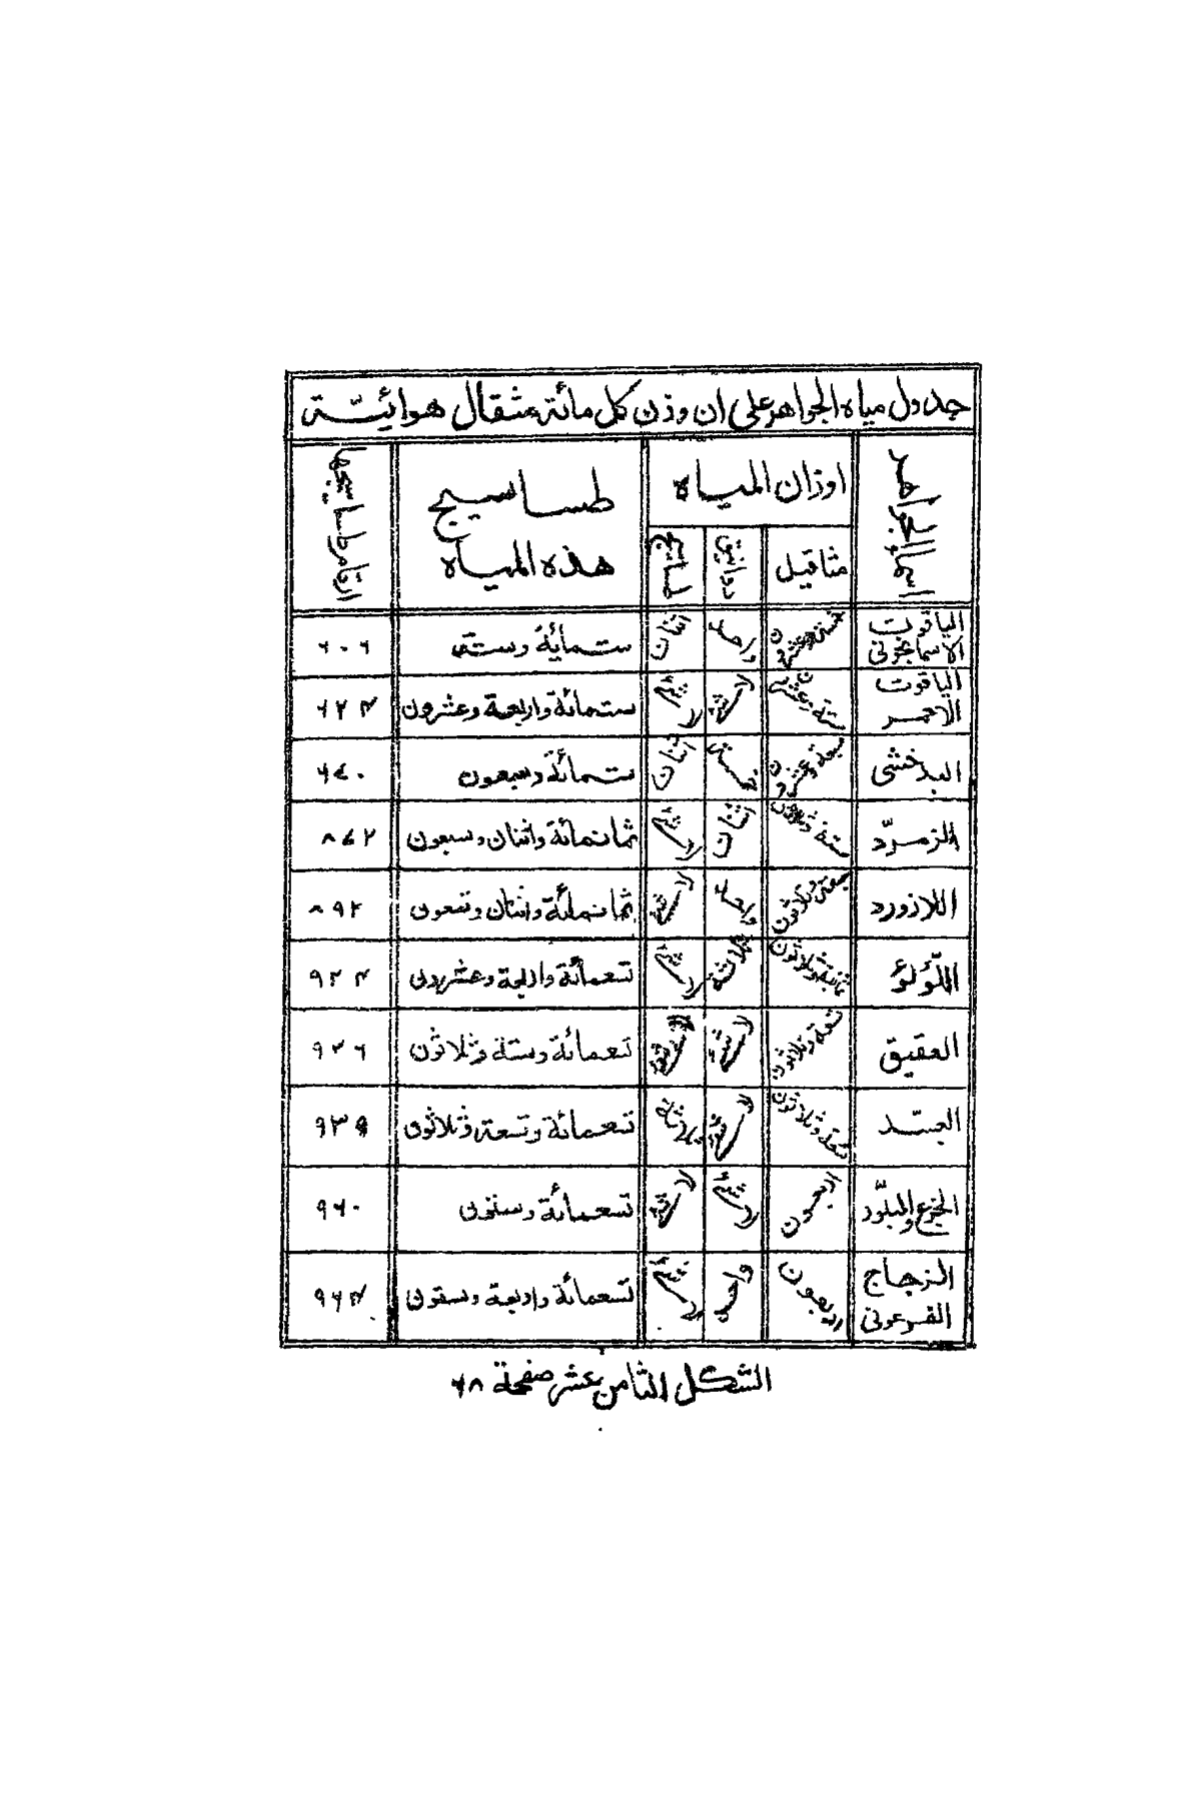 جدول مياه الجواهر على ان وزن كل مائة مثقال هوائيّة
اسماء الجواهر
اوزان المياه
مثاقيل
دوانيق
طساسيج
طساسيج
هذه المياه
ارقام طساسيجها
الياقوت
الاسمانجوني
خمسة وعشرون
واحد
اثنان
ستمائة وستة
٦٠٦
الياقوت
الاحمر
ستة وعشرون
لا شئ
لا شئ
ستمائة واربعة وعشرون
٦٢٤
البدخشى
سبعة وعشرون
خمسة
اثنان
ستمائة وسبعون
٦٧٠
الزمرّد
ستة وثلاثون
اثنان
لا شئ
ثمانمائة واثنان وسبعون
٨٧٢
اللازورد
سبعة وثلاثون
واحد
لا شئ
ثمانمائة واثنان وتسعون
٨٩٢
اللّؤلؤ
ثمانية وثلاثون
ثلاثة
لا شئ
تسعمائة واربعة وعشرون
٩٢٤
العقيق
تسعة وثلاثون
لا شئ
لا شئ
تسعمائة وستة وثلاثون
٩٣٦
البسّد
تسعة وثلاثون
لا شئ
ثلاثة
تسعمائة وتسعة وثلاثون
٩٣٩
الجزع والبلّور
اربعون
لا شئ
لا شئ
تسعمائة وستون
٩٦٠
الزجاج
الفرعونى
اربعون
واحد
لا شئ
تسعمائة واربعة وستون
٩٦٤
الشكل الثامن عشر صفحة ٦٨